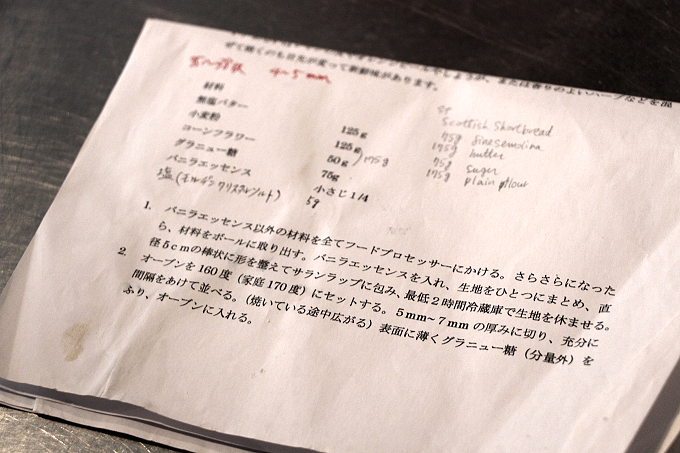 ぜて焼くのも目先が変って新鮮味があります。
4~5mm
材料
無塩バター 125g
小麦粉 125g
コーンフラワー 50g )175g
グラニュー糖 75g
バニラエッセンス 小さじ1/4
塩(モルデンクリスタルソルト) 5g
Scottish Shortbread
75g fine semolina
175g butter
75g suger
175g plain flour
1. バニラエッセンス以外の材料を全てフードプロセッサーにかける。さらさらになった
ら、材料をボールに取り出す。バニラエッセンスを入れ、生地をひとつにまとめ、直
径5cmの棒状に形を整えてサランラップに包み、最低2時間冷蔵庫で生地を休ませる。
2. オーブンを160度(家庭170度)にセットする。5mm~7mmの厚みに切り、充分に
間隔をあけて並べる。(焼いている途中広がる)表面に薄くグラニュー糖(分量外)を
ふり、オーブンに入れる。